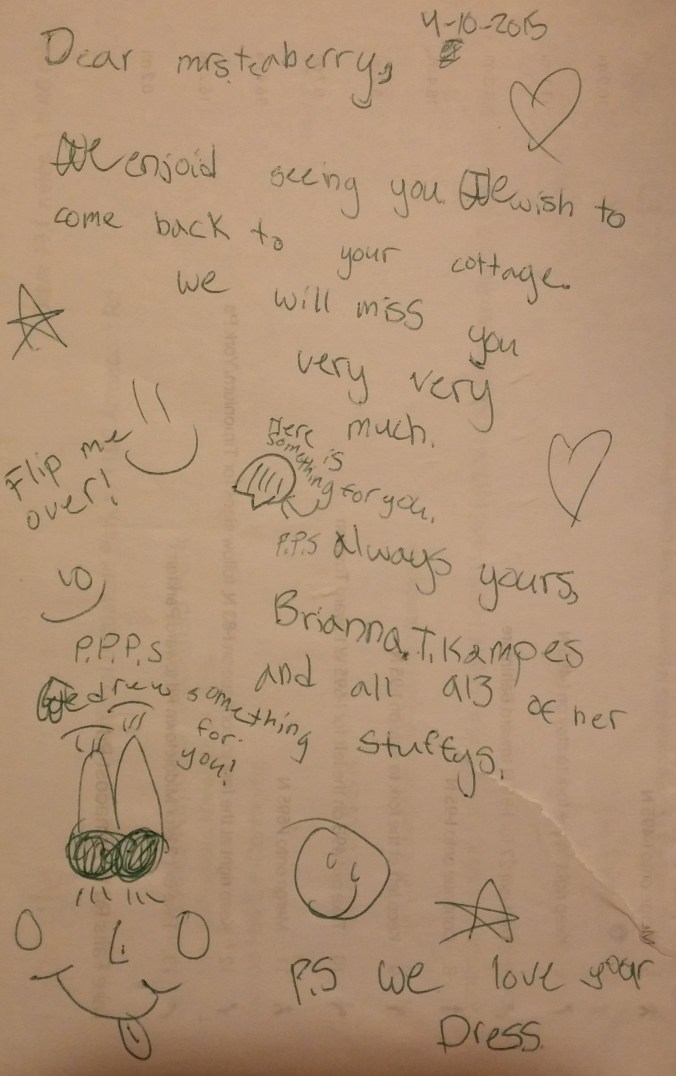 4-10-2015
Dear mrs.teaberry,
We enjoid seeing you. We wish to
come back to your cottage.
we will miss you
very very
much.
Here is
something for you.
Flip me
over!
P.P.S Always yours,
Brianna.T.Kampes
and all 913 of her
stuffys.
P.P.P.S
We drew something
for
you!
P.S we love your
Dress.